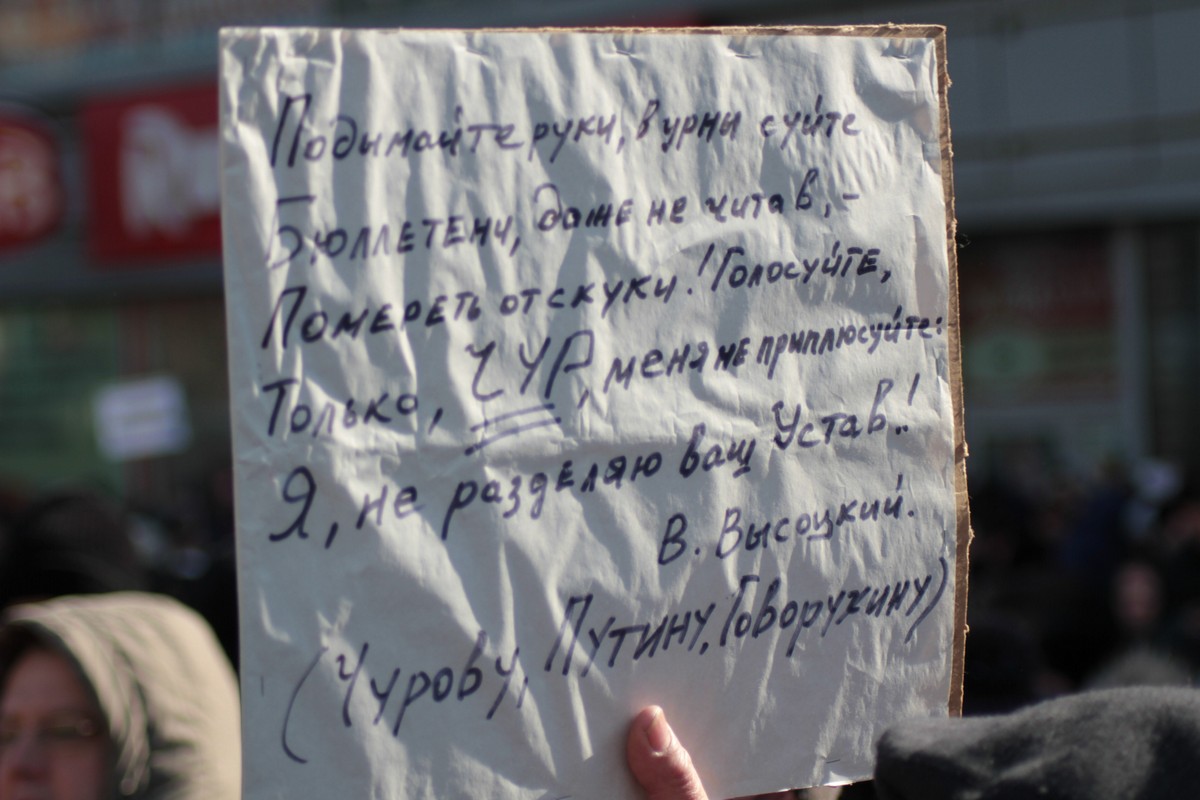 Подымайте руки, в урны суйте
Бюллетени, даже не читав,-
Помереть от скуки! Голосуйте,
Только, ЧУР, меня не приплюсуйте:
Я, не разделяю ваш Устав!!
В. Высоцкий.
(Чурову, Путину, Говорухину)